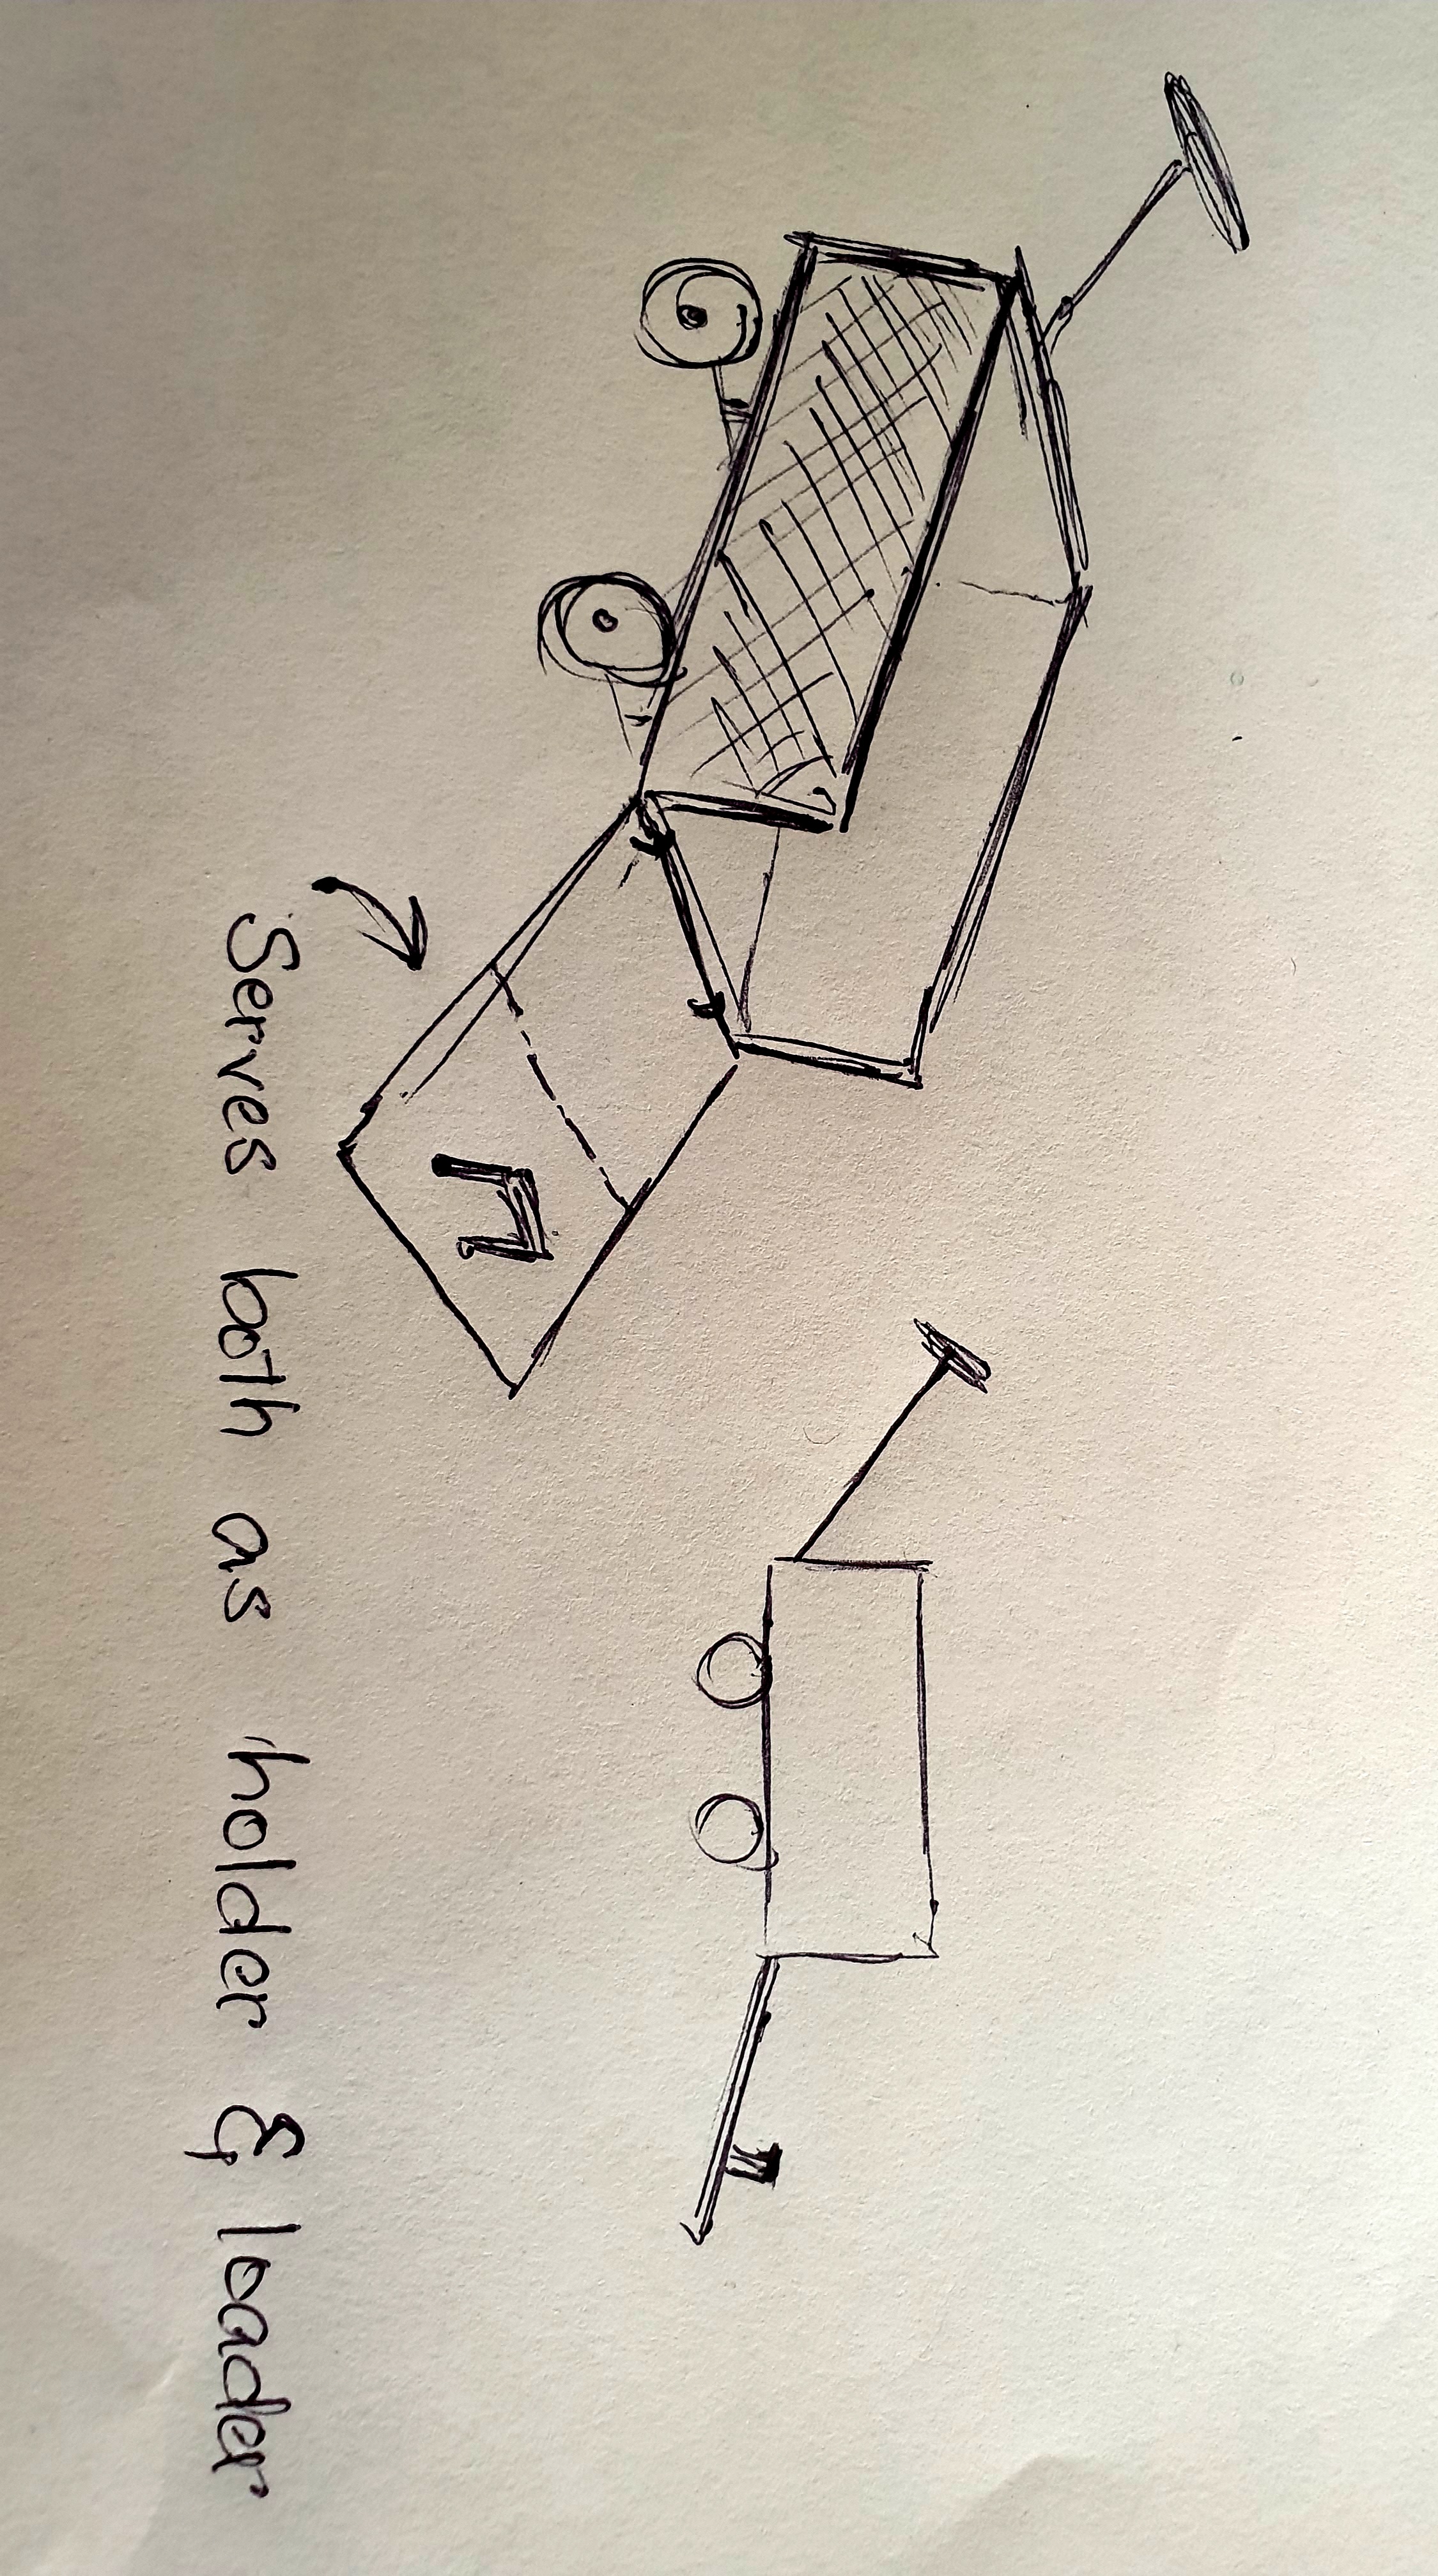 Serves both as holder & loader